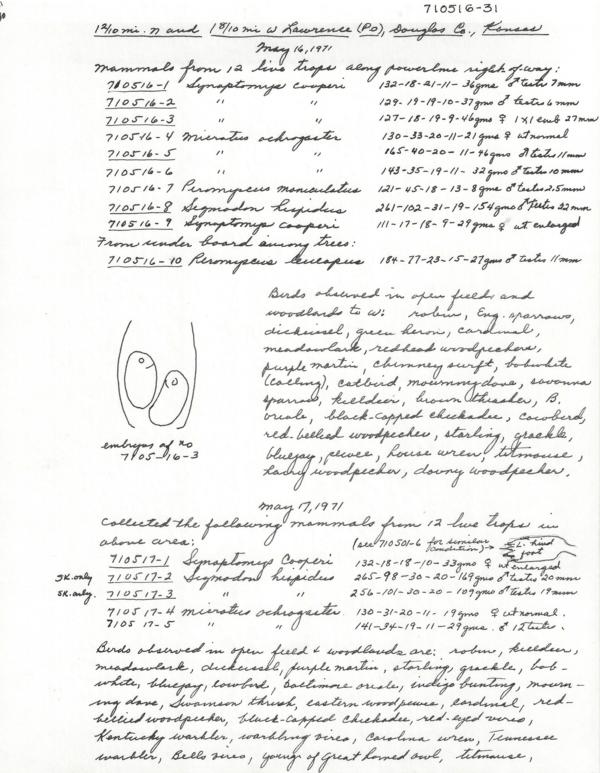 710516-31
1 2/10 mi. N and 1 8/10 mi W Lawrence (PO), Douglas Co., Kansas
May 16, 1971
Mammals from 12 live traps along powerline right-of-way:
710516-1 Synaptomys cooperi 132-18-21-11-36gms ♂ testes 7mm
710516-2 " " 129-19-19-10-37gms ♂ testes 6mm
710516-3 " " 127-18-19-9-46gms ♀ 1x1 emb 27mm
710516-4 Microtus ochrogaster 130-33-20-11-21gms ♀ ut normal
710516-5 " " 165-40-20-11-46gms ♂ testes 11mm
710516-6 " " 143-35-19-11-32gms ♂ testes 10mm
710516-7 Peromyscus maniculatus 121-45-18-13-8gms ♂ testes 2.5mm
710516-8 Sigmodon hispidus 261-102-31-19-154gms ♂ testes 22mm
710516-9 Synaptomys cooperi 111-17-18-9-29gms ♀ ut enlarged
From under board among trees:
710516-10 Peromyscus leucopus 184-77-23-15-27gms ♂ testes 11mm
Birds observed in open fields and
woodlands to W: robin, Eng. sparrows,
dickcissel, green heron, cardinal,
meadowlark, redhead woodpeckers,
purple martin, chimney swift, bobwhite
(calling), catbird, mourning dove, savanna
sparrow, killdeer, brown thrasher, B.
oriole, black-capped chickadee, cowbird,
red-bellied woodpecker, starling, grackle,
bluejay, pewee, house wren, titmouse,
hairy woodpecker, downy woodpecker.
embryos of no
7105-16-3
May 17, 1971
Collected the following mammals from 12 live traps in
above area: (see 710501-6 for similar condition) → L. hind foot
710517-1 Synaptomys Cooperi 132-18-18-10-33gms ♀ ut enlarged
SK. only 710517-2 Sigmodon hispidus 265-98-30-20-169gms ♂ testes 20mm
SK. only. 710517-3 " " 256-101-30-20-109gms ♂ testes 19mm
710517-4 Microtus ochrogaster 130-31-20-11-19gms ♀ ut normal.
7105 17-5 " " 141-34-19-11-29gms. ♂ 12 testes.
Birds observed in open field & woodlands are: robin, killdeer,
meadowlark, dickcissel, purple martin, starling, grackle, bob-
white, bluejay, cowbird, Baltimore oriole, indigo bunting, mourn-
ing dove, Swainson thrush, eastern woodpewee, cardinal, red-
bellied woodpecker, black-capped chickadee, red-eyed vireo,
Kentucky warbler, warbling vireo, Carolina wren, Tennessee
warbler, Bells vireo, young of Great horned owl, titmouse,